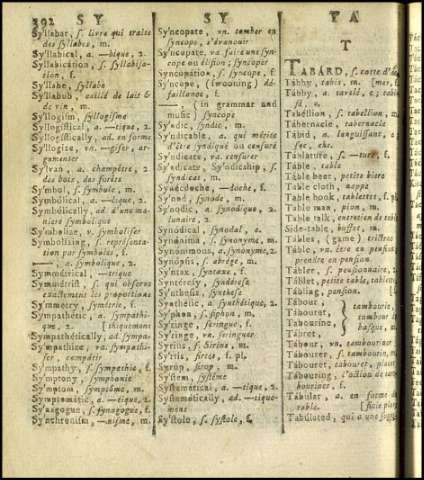 392 S Y
S Y
T A
Sy'llabar, s. livre qui traite
des syllabes, m.
Sy'llabical, a. —bique, 2.
Syllabication, s. syllabisa-
tion, f.
Sy'llabe, syllabe
Sy'llabub, caillé de lait &
de vin, m.
Sy'llogism, syllogisme
Syllogistical, a. —tique, 2.
Syllogistically, ad. en forme
Sy'llogize, vn. —giser, ar-
gumenter
Sy'lvan, a. champêtre, 2
des bois, des forêts
Sy'mbol, s. symbole, m.
Symbólical, a. —tique, 2.
Symbólically, ad. d'une ma-
niere symbolique
Sy'mbolize, v. symboliser
Symbolízing, s. représenta-
tion par symboles, f.
——, a. symbolique, 2.
Symmétrical, —trique
Symmétrist, s. qui observe
exactement les proportions
Sy'mmetry, symétrie, f.
Sympathétic, a. sympathi-
que, 2. [thiquement
Sympathétically, ad. sympa-
Sy'mpathize, vn. sympathi-
ser, compatir
Sy'mpathy, s. sympathie, f.
Sy'mphony, symphonie
Sy'mptom, symptôme, m.
Symptomátic, a. —tique, 2.
Sy'nagogue, s. synagogue, f.
Sy'nchronism, —nisme, m.
Sy'ncopate, vn. tomber en
syncope, s'évanouir
Sy'ncopate, va. faire une syn-
cope ou élision; syncoper
Syncopátion, s. syncope, f.
Sy'ncope, (swooning) dé-
faillance, f.
——, (in grammar and
music) syncope
Sy'ndic, syndic, m.
Sy'ndicable, a. qui mérite
d'être syndiqué ou censuré
Sy'ndicate, va. censurer
Sy'ndicate, Sy'ndicship, s.
syndicat, m.
Synécdoche, —doche, f.
Sy'nod, synode, m.
Sy'nodic, a. synodique, 2.
lunaire, 2.
Synódical, synodal, a.
Synónima, s. synonyme, m.
Synónimous, a. synonyme, 2.
Synópsis, s. abrégé, m.
Sy'ntax, syntaxe, f.
Syntéresy, syndérèse
Sy'nthesis, synthese
Synthétic, a. synthétique, 2.
Sy'phon, s. siphon, m.
Sy'ringe, seringue, f.
Sy'ringe, va. seringuer
Syrius, s. Sirius, m.
Sy'rtis, sirtes, f. pl.
Syrup, sirop, m.
Sy'stem, systême
Systemátical, a. —tique, 2.
Systemátically, ad. —tique-
ment
Sy'stole, s. systole, f.
T
TABÁRD, s. sorte d'ha
Tábby, tabis, m. [mer, f.
Tábby, a. tavelé, e; tabi
sé, e.
Tabéllion, s. tabellion, m.
Tábernacle, tabernacle
Tábid, a. languissant, e;
sec, che.
Táblature, s. —ture, f.
Táble, table
Táble beer, petite biere
Table cloth, nappe
Table book, tablettes, f. pl.
Table man, pion, m.
Table talk, entretien de table
Side-table, buffet, m.
Tables, (game) trictrac
Táble, vn. être en pension,
prendre en pension
Tábler, s. pensionnaire, 2.
Táblet, petite table, tablette
Tábling, pension
Tábour,
Tábouret, } tambourin,
Tábourine, tambour
Tábret, basque, m.
Tábour, vn. tambouriner
Tábourer, s. tambourin, m.
Tábouret, tabouret, pliant
Tábouring, l'action de tam-
bouriner, f.
Tábular, a. en forme de
table.
Tábulated, qui a une surface